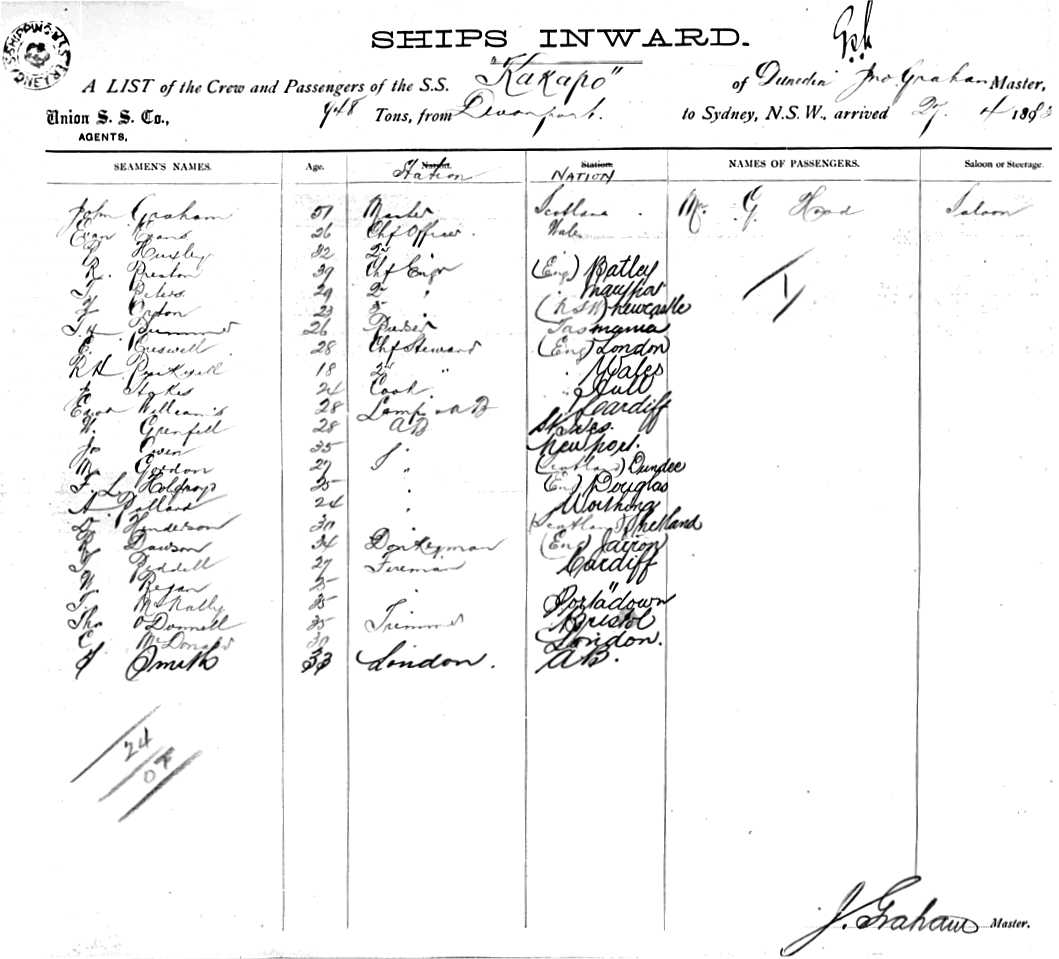 SHIPPING MASTER SYDNEY
SHIPS INWARD.
A LIST of the Crew and Passengers of the S.S. "Kakapo" of Dunedin Jno. Graham Master,
Union S. S. Co., 948 Tons, from Devonport. to Sydney, N.S.W., arrived 27. 4 189
AGENTS.
SEAMEN'S NAMES. Age. Station NATION NAMES OF PASSENGERS. Saloon or Steerage.
John Graham 51 Master Scotland Mr. G. Head Saloon
Evan Evans 26 Chf Officer. Wales
Huxley 32 2nd
R. Preston 39 Chf Engr (Eng) Batley
Peters 29 2nd " Maryport
23 3 (N.S.W) Newcastle
26 Tasmania
E. 28 Chf Steward (Eng) London
R H 18 2nd " " Wales
Stokes 24 Cook " Hull
Evan Williams 28 Lamps AB Cardiff
W. Grenfell 28 AB St Ives.
Jn Owen 35 Newport.
M. Gordon 27 " (Scotland) Dundee
F. L. 25 (Eng) Douglas
A. Pollard 24 Worthing
D. Henderson 30 (Scotland) Shetland
R. Dawson 34 Donkeyman (Eng) Jarrow
27 Fireman Cardiff
W. Regan 25 "
T. McNally 25 Portadown
Tho O'Donnell 35 Trimmer Bristol
C. McDonald 30 London.
J Smith 33 London. AB.
1
24
J. Graham Master.